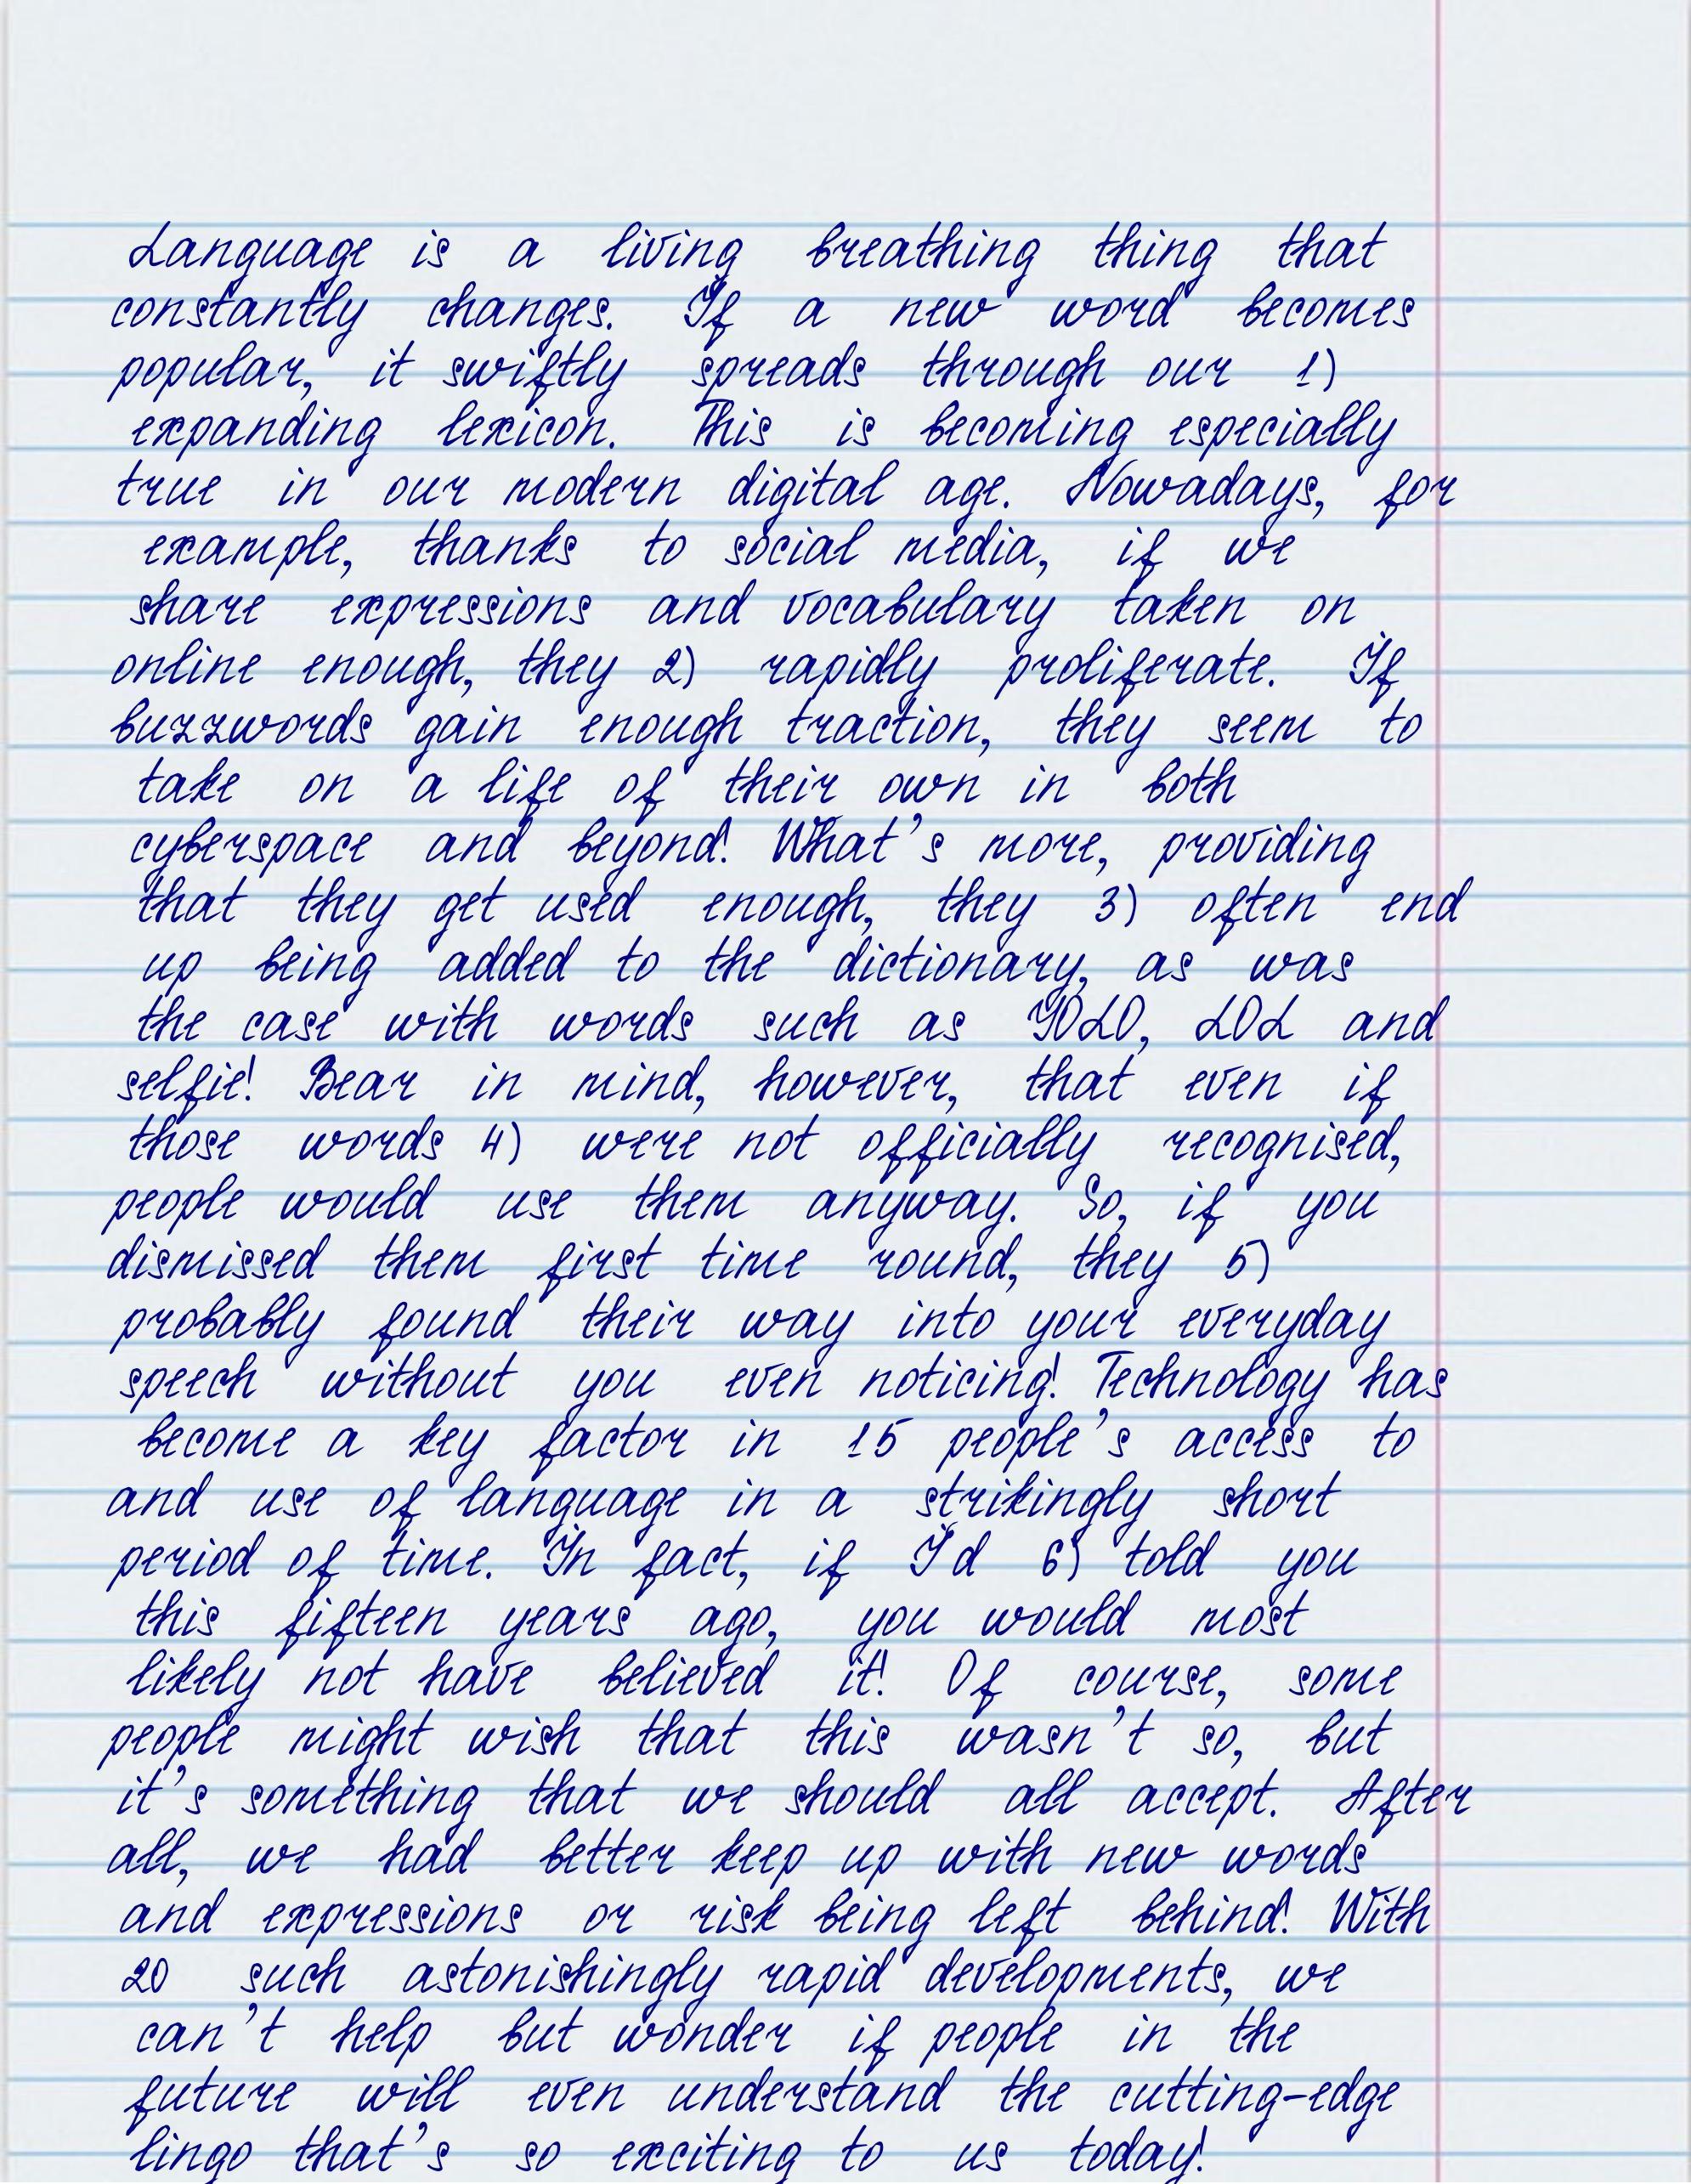 Language is a living breathing thing that
constantly changes. If a new word becomes
popular, it swiftly spreads through our 1)
expanding lexicon. This is becoming especially
true in our modern digital age. Nowadays, for
example, thanks to social media, if we
share expressions and vocabulary taken on
online enough, they 2) rapidly proliferate. If
buzzwords gain enough traction, they seem to
take on a life of their own in both
cyberspace and beyond! What's more, providing
that they get used enough, they 3) often end
up being added to the dictionary, as was
the case with words such as YOLO, LOL and
selfie! Bear in mind, however, that even if
those words 4) were not officially recognised,
people would use them anyway. So, if you
dismissed them first time round, they 5)
probably found their way into your everyday
speech without you even noticing! Technology has
become a key factor in 15 people's access to
and use of language in a strikingly short
period of time. In fact, if I'd 6) told you
this fifteen years ago, you would most
likely not have believed it! Of course, some
people might wish that this wasn't so, but
it's something that we should all accept. After
all, we had better keep up with new words
and expressions or risk being left behind! With
20 such astonishingly rapid developments, we
can't help but wonder if people in the
future will even understand the cutting-edge
lingo that's so exciting to us today!